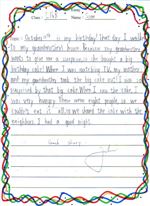 Class: Name:
October is my birthday. That day I went
to my grandmother's house because my grandmother
wants to give me a surprise. She bought a big
birthday cake! When I was watching TV, my mother
and my grandmother took the big cake out! I was
surprised by that big cake. When I saw the cake, I
was very hungry. There were eight people, so we
couldn't eat it all, so we shared the cake with the
neighbors. I had a good night.